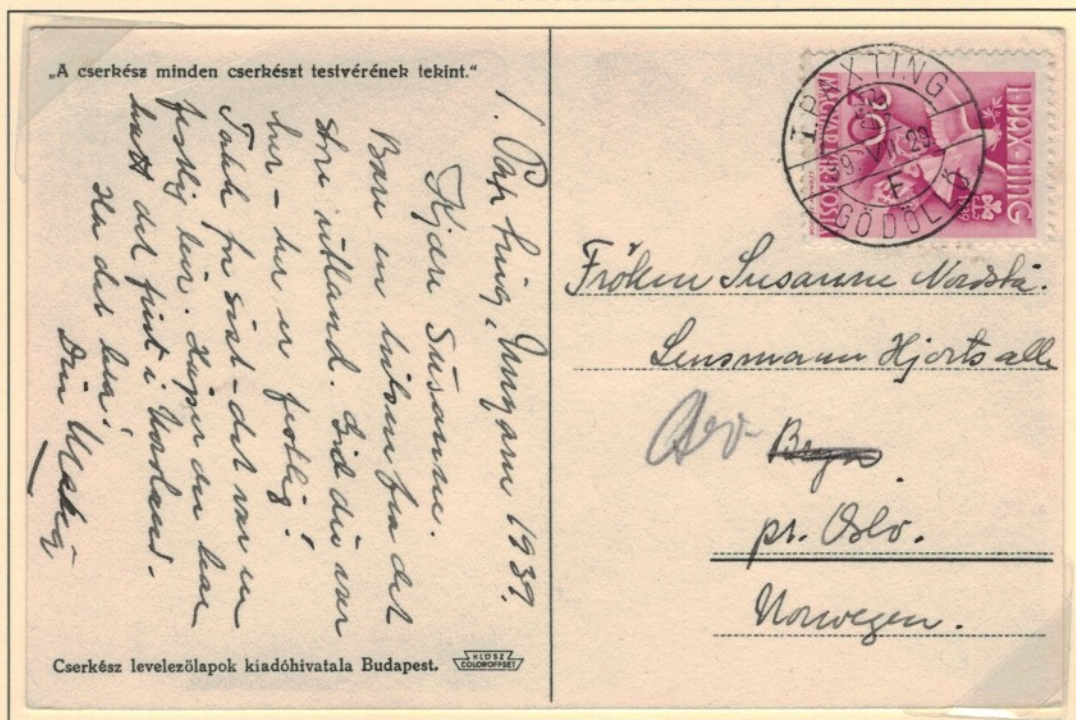 „A cserkész minden cserkészt testvérének tekint."
1. Pax ting, Ungarn 1939.
Kjære Susanne.
Bare en hilsen fra det
store utland. Gid du var
her – her er festlig!
Takk for sist – det var en
festlig leir. Håper du har
hatt det fint i Nordland.
Ha det bra!
Din
Cserkész levelezőlapok kiadóhivatala Budapest.
KLÖSZ
COLOROFFSET
I. PAX TING
39 VII 29.
F
GÖDÖLLŐ
I·PAX-TING
1939
20
MAGYAR KIR. POSTA
Fröken Susanne
Lensmann Hjorts alle
Bryn
pr. Oslo.
Norwegen.